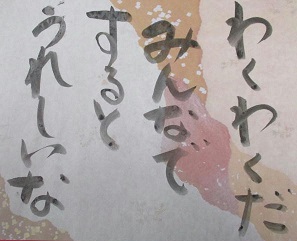 わくわくだ
みんなで
すると
うれしいな